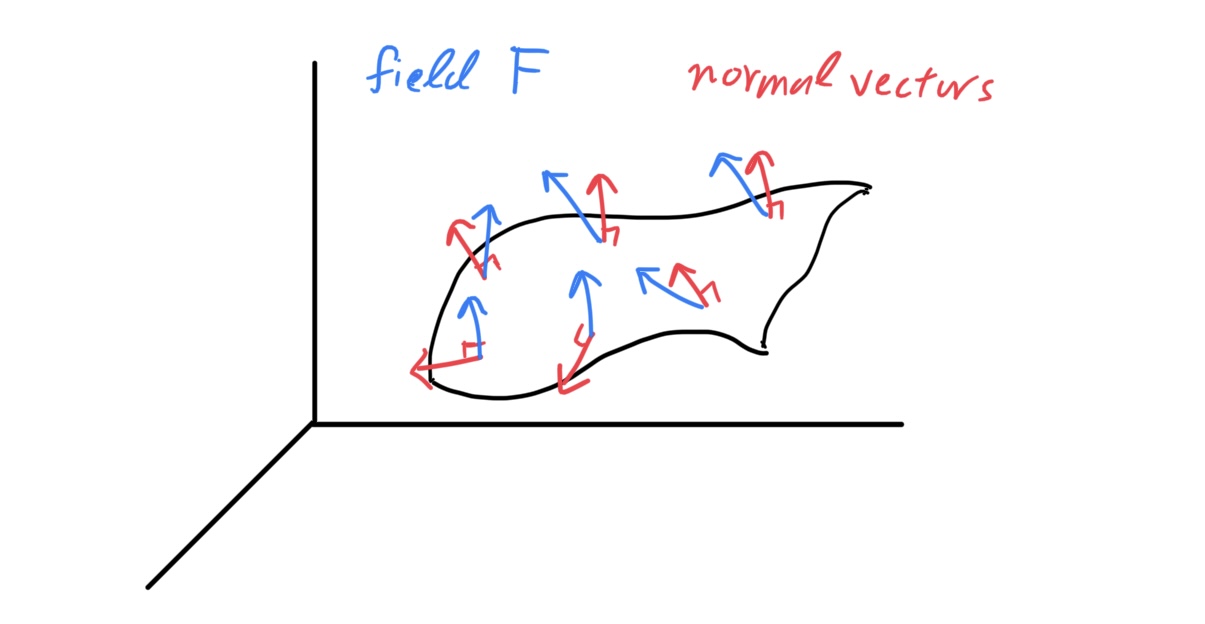 field F
normal vectors